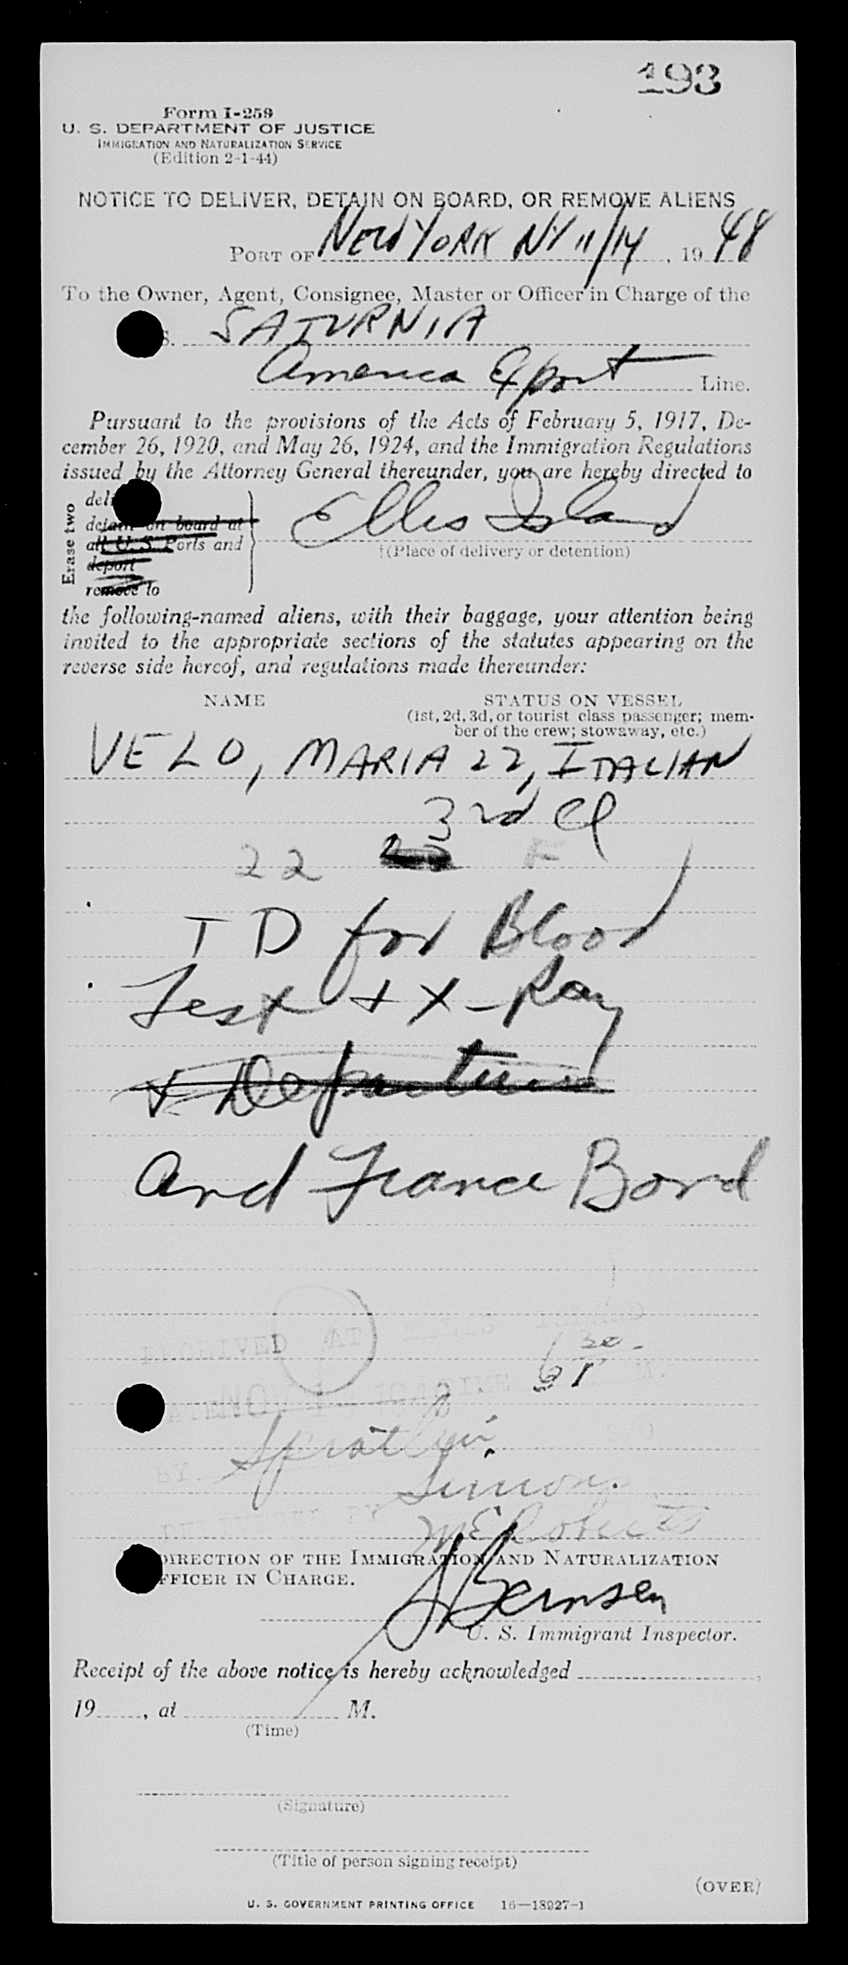 193
Form I-259
U. S. DEPARTMENT OF JUSTICE
IMMIGRATION AND NATURALIZATION SERVICE
(Edition 2-1-44)
NOTICE TO DELIVER, DETAIN ON BOARD, OR REMOVE ALIENS
PORT OF NEW YORK NY 11/14, 1948
To the Owner, Agent, Consignee, Master or Officer in Charge of the
S. SATURNIA
America Export Line.
Pursuant to the provisions of the Acts of February 5, 1917, De-
cember 26, 1920, and May 26, 1924, and the Immigration Regulations
issued by the Attorney General thereunder, you are hereby directed to
Erase two
detain on board at
all U. S. Ports and
deport
remove to
Ellis Island
†(Place of delivery or detention)
the following-named aliens, with their baggage, your attention being
invited to the appropriate sections of the statutes appearing on the
reverse side hereof, and regulations made thereunder:
NAME
STATUS ON VESSEL
(1st, 2d, 3d, or tourist class passenger; mem-
ber of the crew; stowaway, etc.)
VELO, MARIA 22, ITALIAN
3rd Cl
22 22 F
TD for Blood
Test + X-Ray
+ Departure
and France Bond
RECEIVED AT
Simon.
McRoberts
DIRECTION OF THE IMMIGRATION AND NATURALIZATION
OFFICER IN CHARGE.
U. S. Immigrant Inspector.
Receipt of the above notice is hereby acknowledged
19, at M.
(Time)
(Signature)
(Title of person signing receipt)
(OVER)
U. S. GOVERNMENT PRINTING OFFICE 16—18927-1